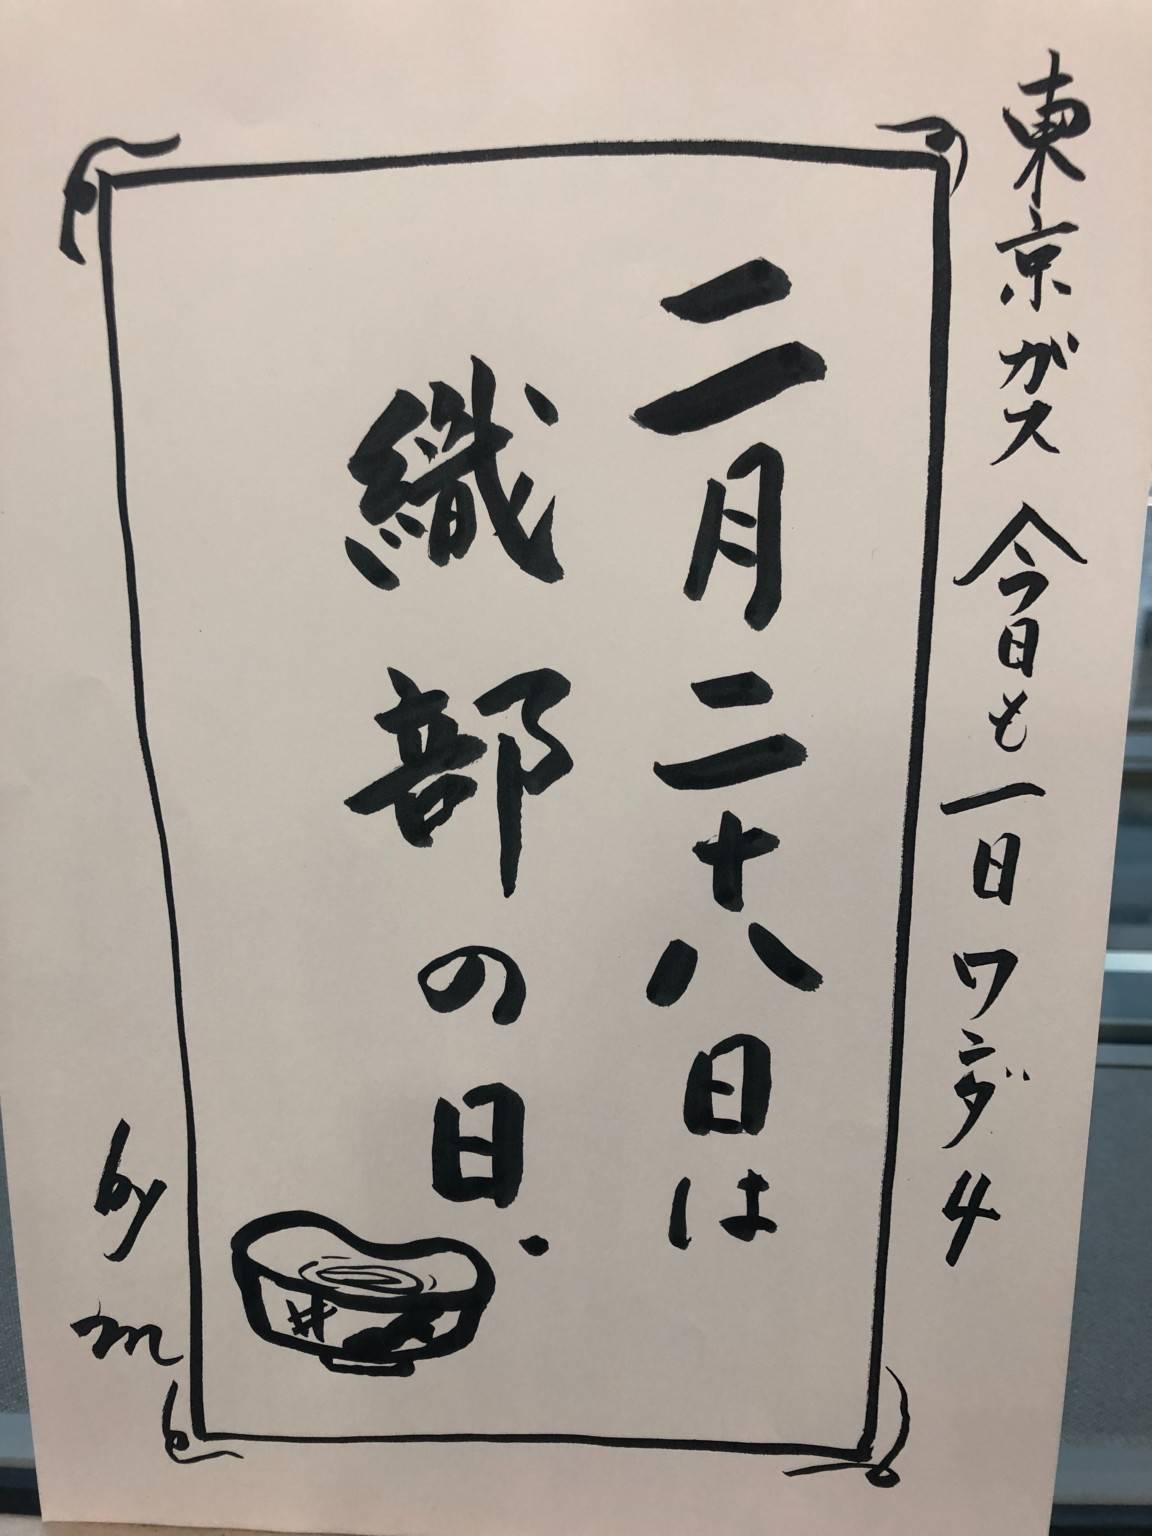 東京ガス 今日も一日 ワンダ 4
二月二十八日は
織部の日.
by m